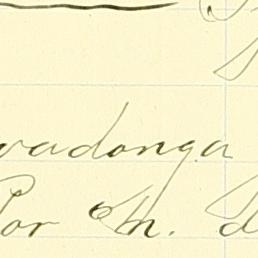 vadonga
Por M. d